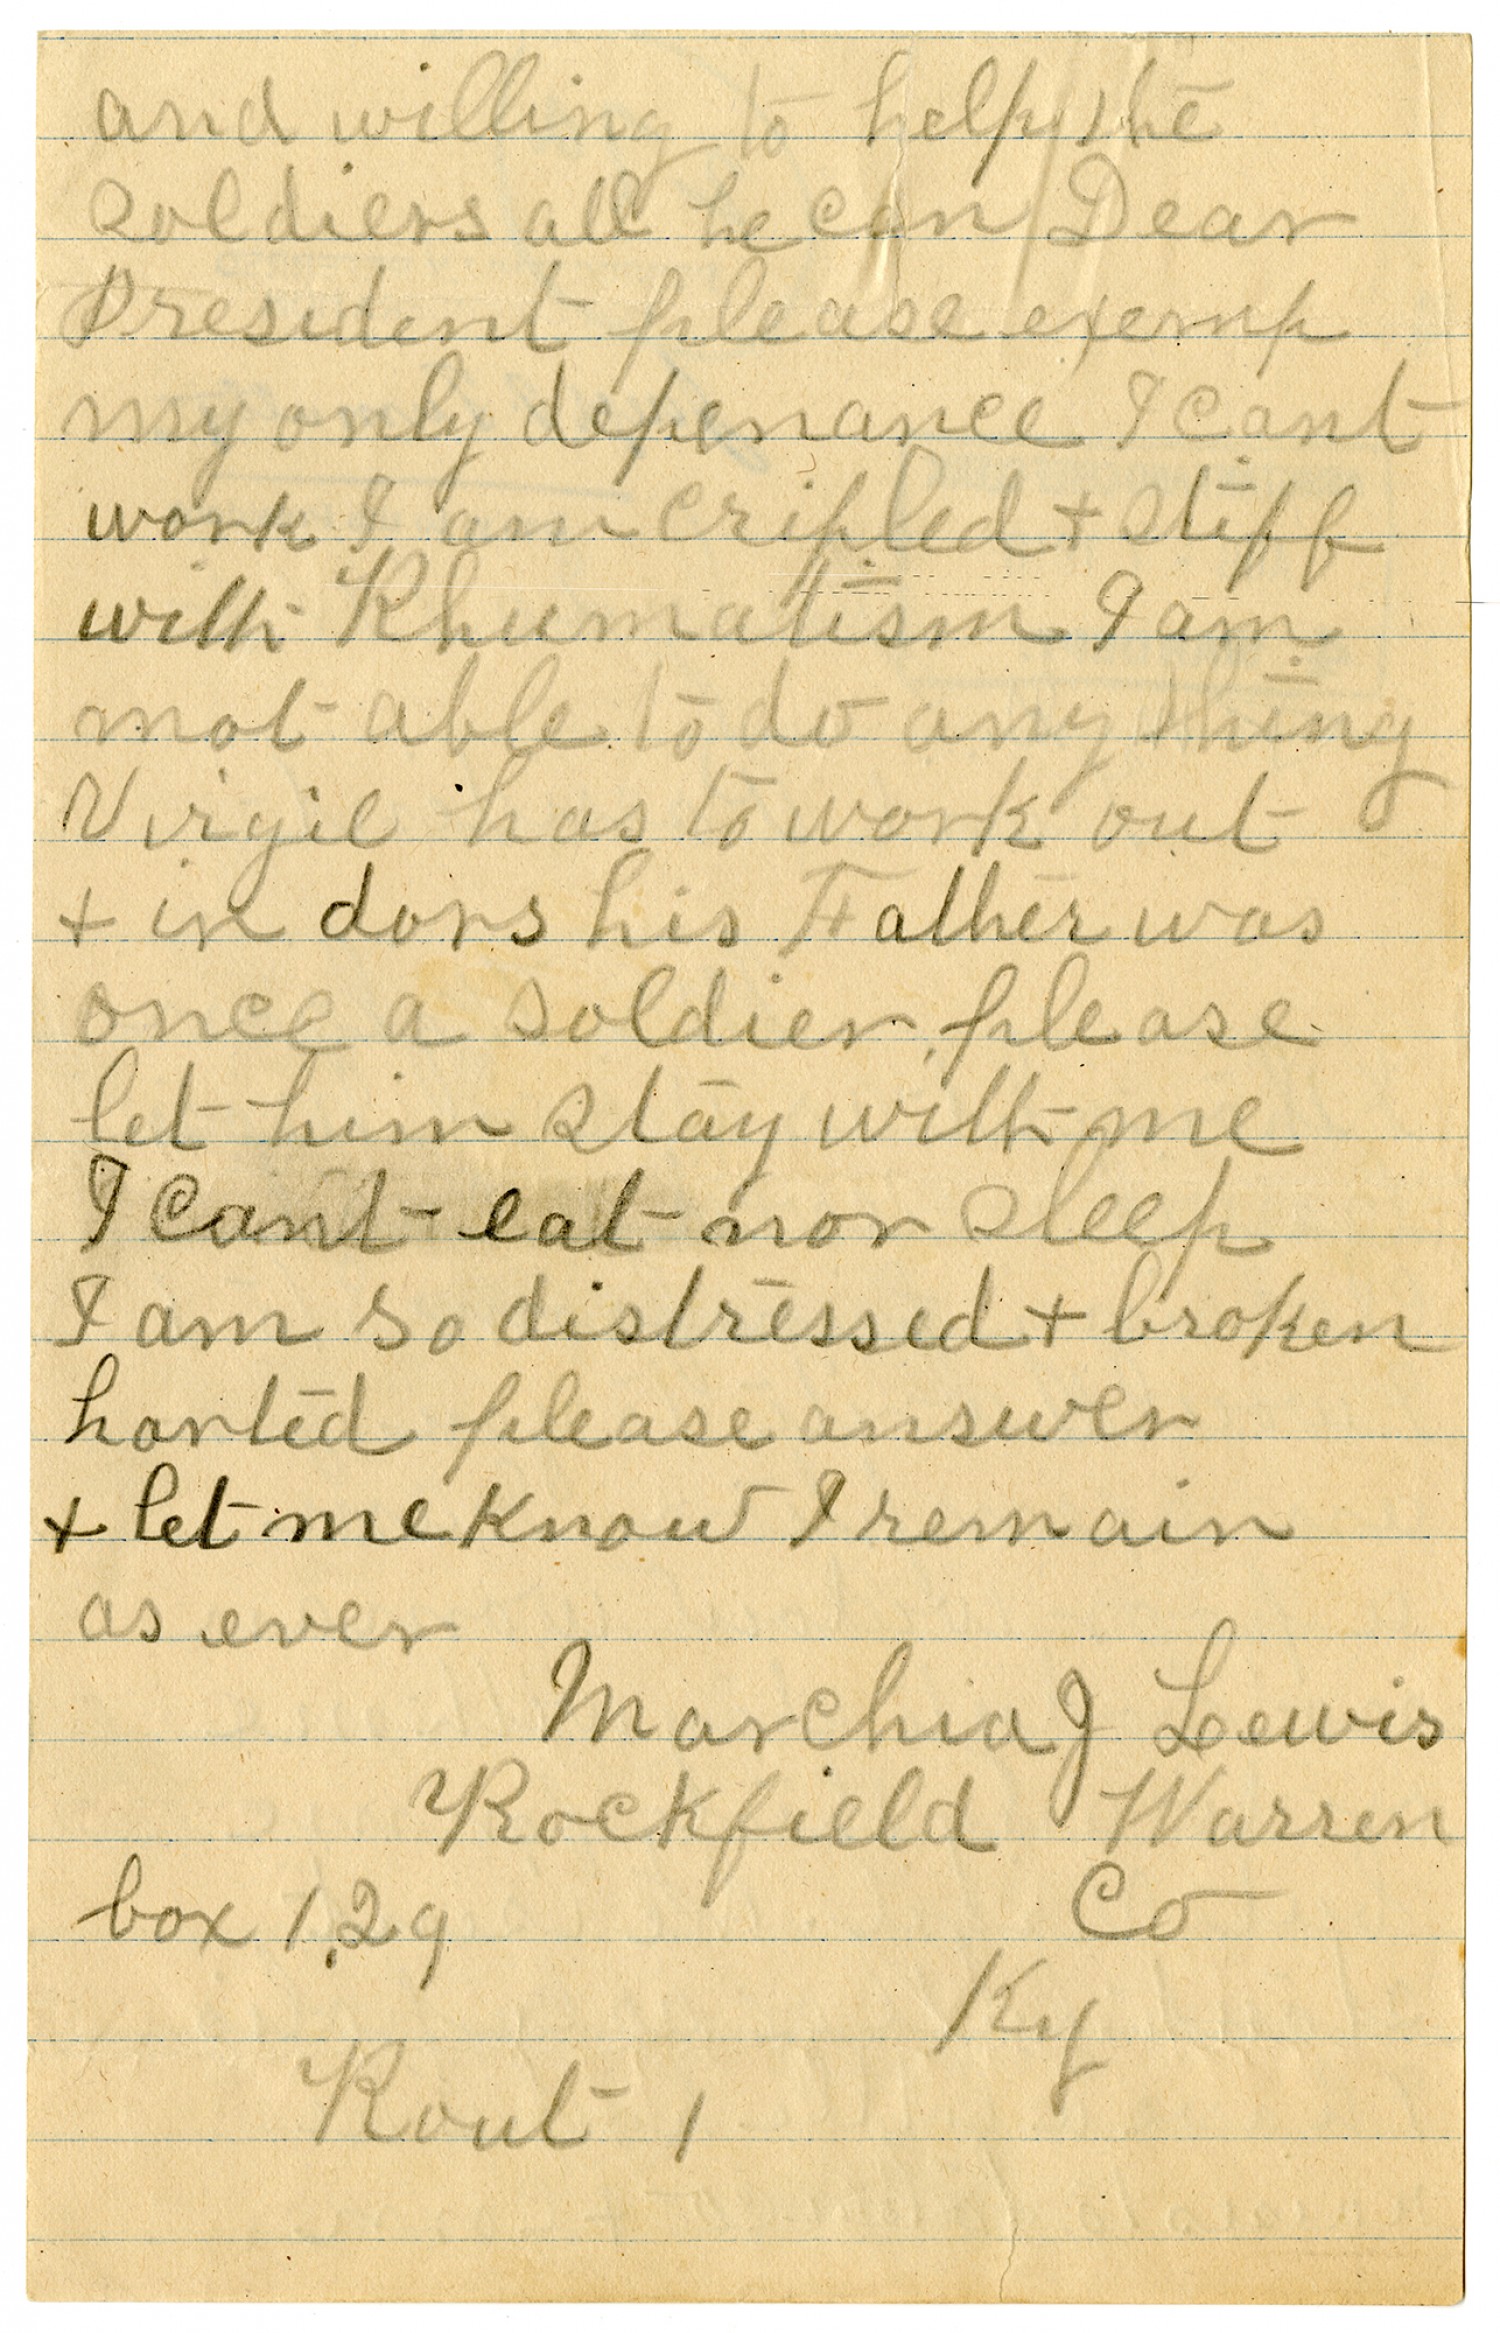 and willing to help the
soldiers all he can Dear
President please exemp
my only depenance I cant
work I am cripled + stiff
with Rhumatism I am
not able to do any thing
Virgil has to work out
+ in dors his Father was
once a soldier, please
let him stay with me
I cant eat nor sleep
I am so distressed + broken
harted please answer
+ let me know I remain
as ever
Marchia J Lewis
Rockfield Warren
box 129 Co
Ky
Rout 1